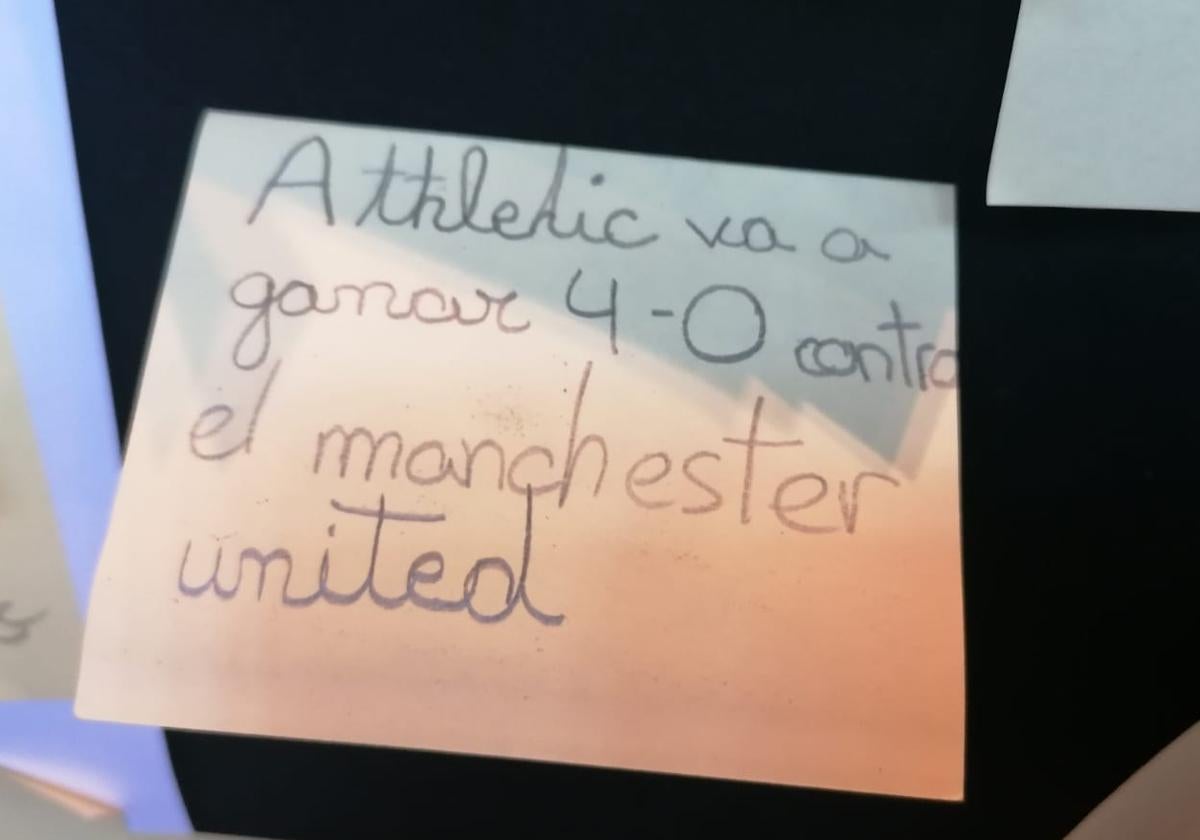 Athletic va a
ganar 4-0 contra
el manchester
united